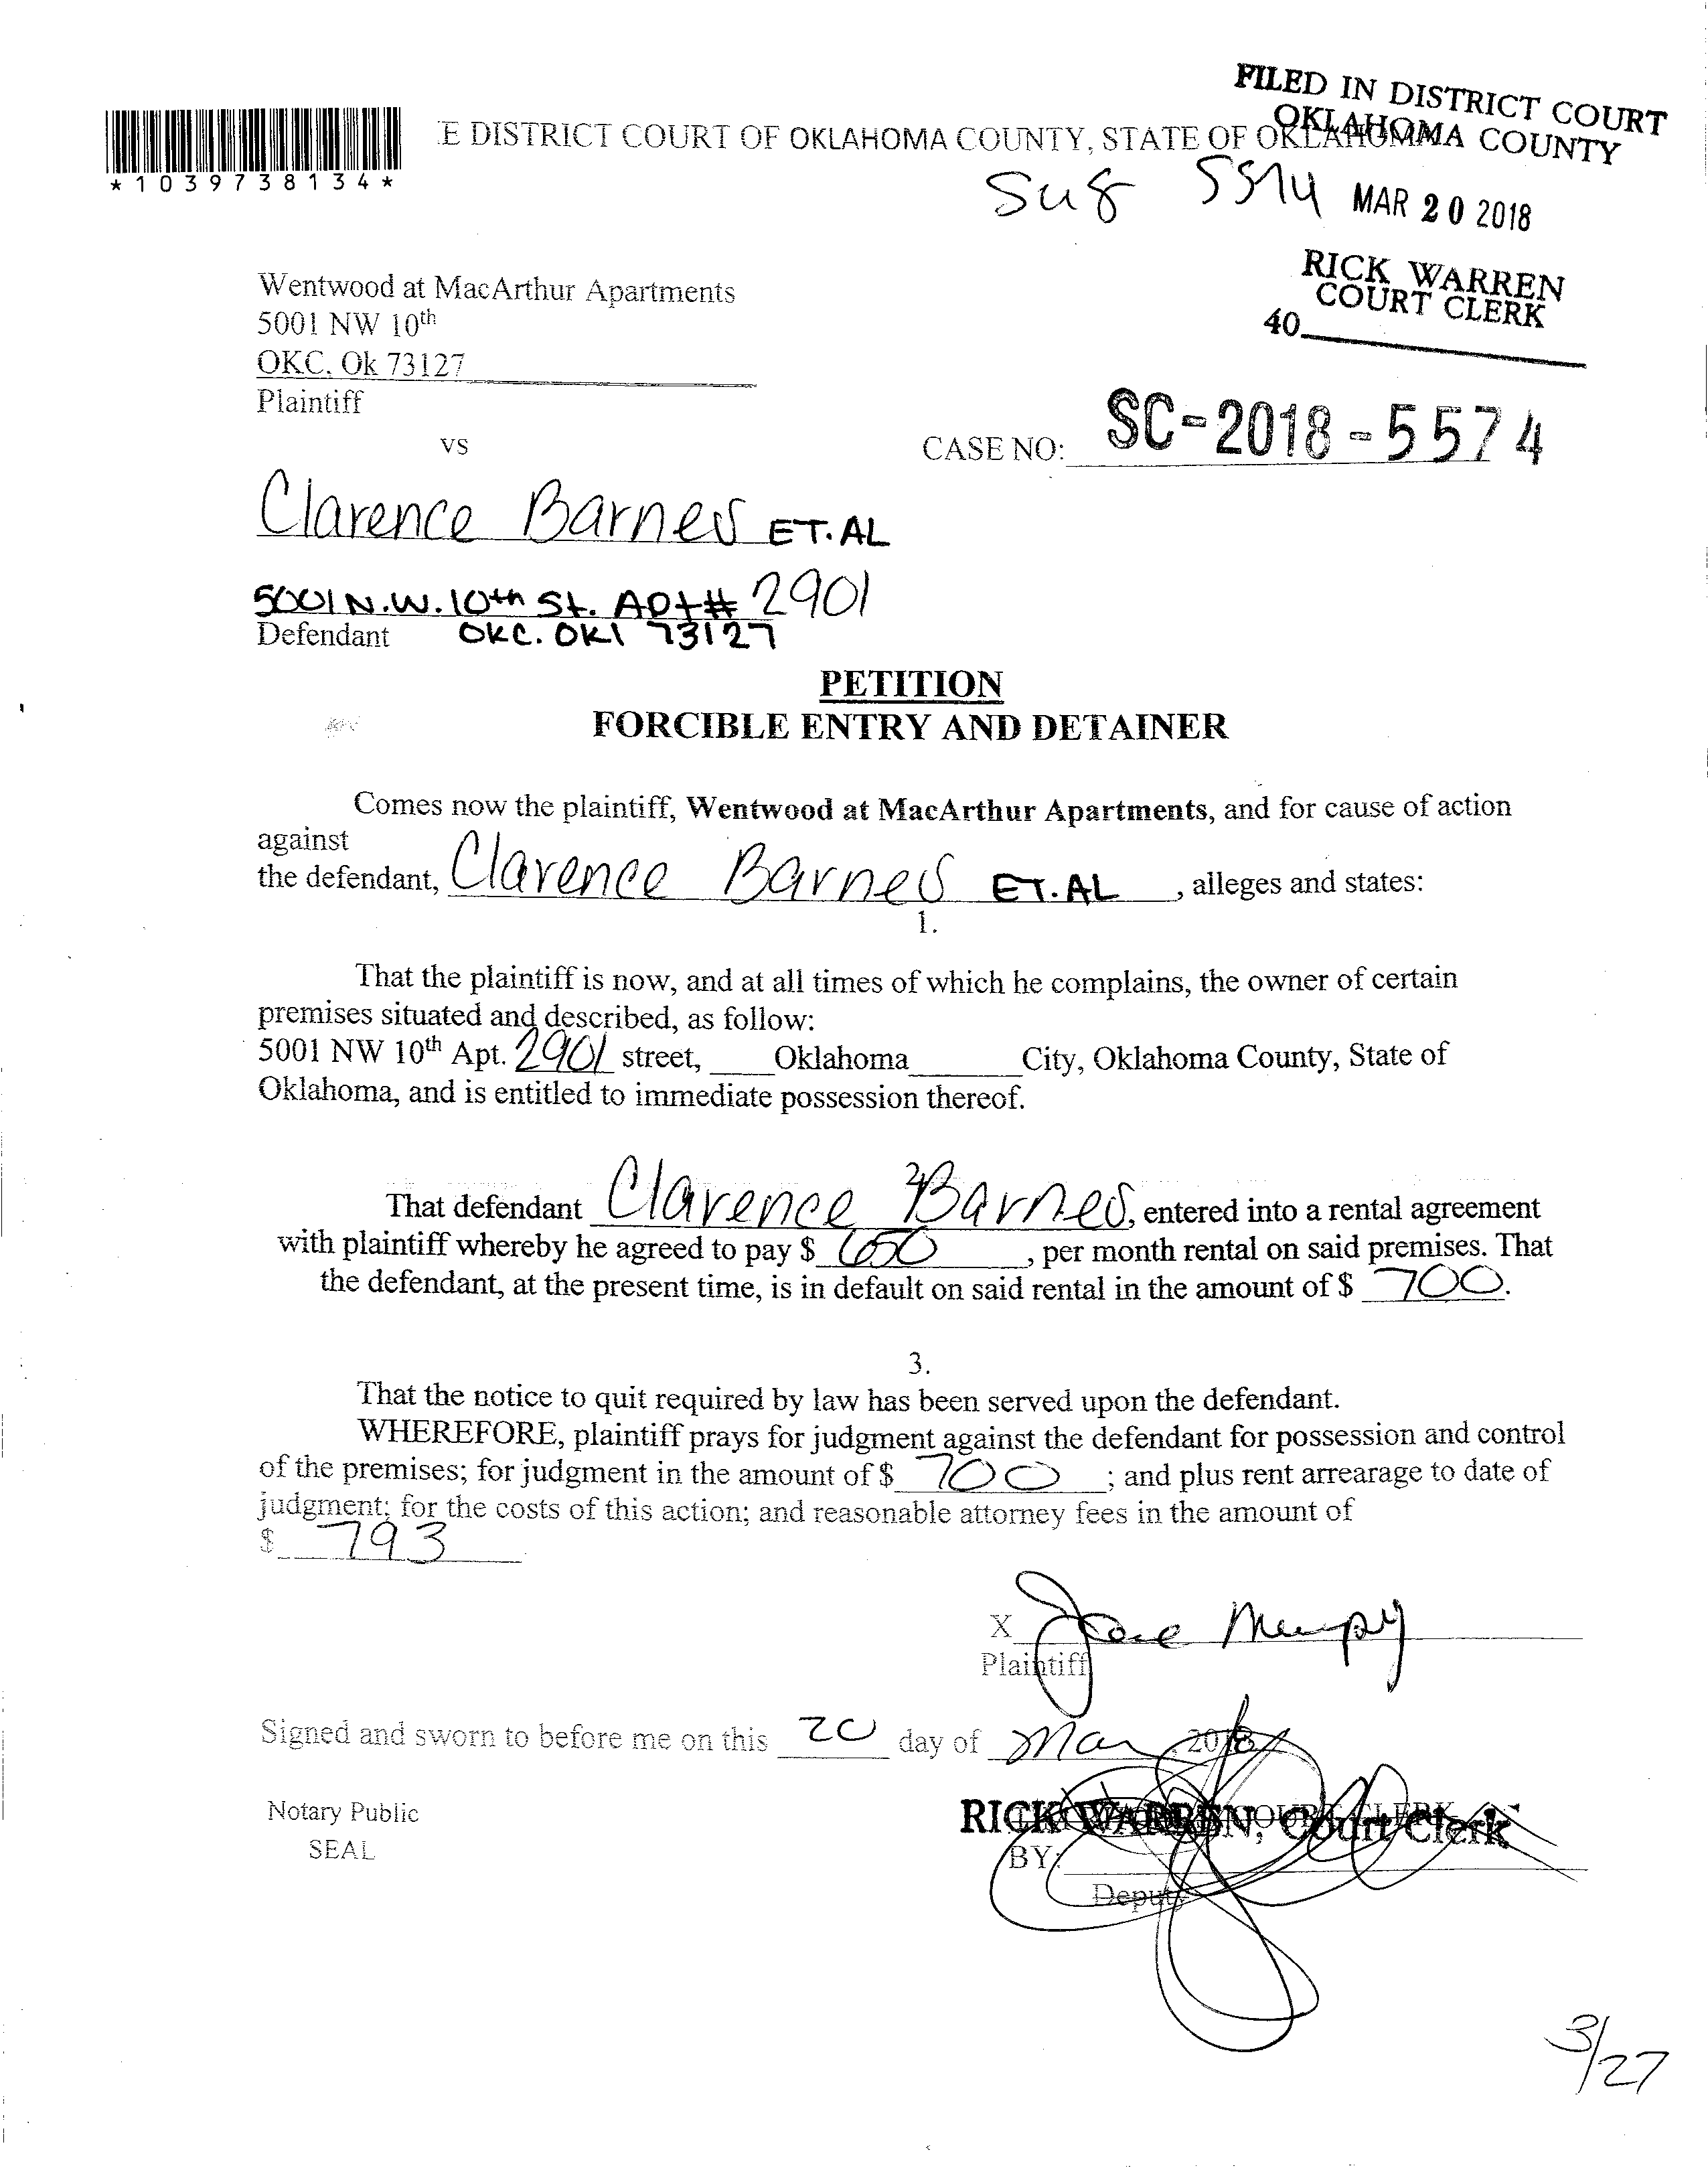 FILED IN DISTRICT COURT
OKLAHOMA COUNTY
*1039738134*
E DISTRICT COURT OF OKLAHOMA COUNTY, STATE OF OKLAHOMA
MAR 20 2018
RICK WARREN
COURT CLERK
40
Wentwood at MacArthur Apartments
5001 NW 10th
OKC, Ok 73127
Plaintiff
vs
CASE NO: SC-2018-5574
Clarence Barnes ET.AL
5001 N.W. 10th St. APt# 2901
Defendant OKC. OKl 73127
PETITION
FORCIBLE ENTRY AND DETAINER
Comes now the plaintiff, Wentwood at MacArthur Apartments, and for cause of action
against
the defendant, Clarence Barnes ET.AL, alleges and states:
1.
That the plaintiff is now, and at all times of which he complains, the owner of certain
premises situated and described, as follow:
5001 NW 10th Apt. 2901 street, Oklahoma City, Oklahoma County, State of
Oklahoma, and is entitled to immediate possession thereof.
2.
That defendant Clarence Barnes, entered into a rental agreement
with plaintiff whereby he agreed to pay $ 650, per month rental on said premises. That
the defendant, at the present time, is in default on said rental in the amount of $ 700.
3.
That the notice to quit required by law has been served upon the defendant.
WHEREFORE, plaintiff prays for judgment against the defendant for possession and control
of the premises; for judgment in the amount of $ 700; and plus rent arrearage to date of
judgment; for the costs of this action; and reasonable attorney fees in the amount of
$ 793
X
Plaintiff
Signed and sworn to before me on this 20 day of Mar, 2018
Notary Public
SEAL
RICK WARREN, Court Clerk
BY:
Deputy
3/27